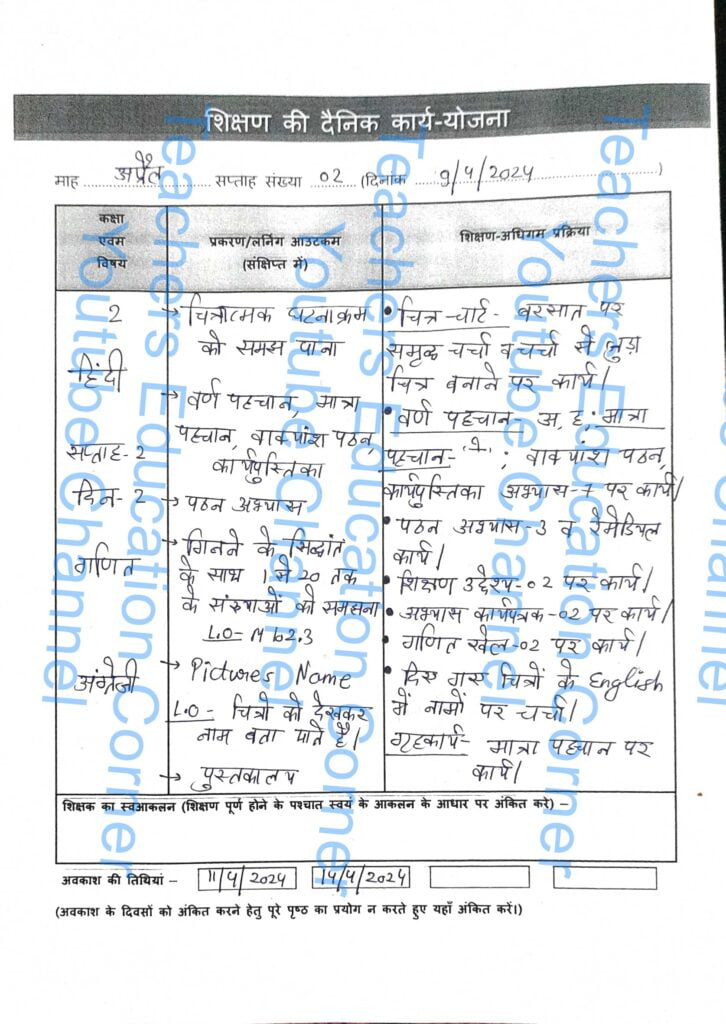 शिक्षण की दैनिक कार्य-योजना
माह अप्रैल सप्ताह संख्या 02 (दिनांक 9/4/2024)
कक्षा
एवम
विषय
प्रकरण/लर्निंग आउटकम
(संक्षिप्त में)
शिक्षण-अधिगम प्रक्रिया
2
हिंदी
सप्ताह-2
दिन-2
गणित
अंग्रेजी
→ चित्रात्मक घटनाक्रम
को समझ पाना
→ वर्ण पहचान, मात्रा
पहचान, वाक्यांश पठन,
कार्यपुस्तिका
→ पठन अभ्यास
→ गिनने के सिद्धांत
के साथ 1 से 20 तक
के संख्याओं को समझना
L.O- M
→ Pictures Name
L.O - चित्रों को देखकर
नाम बता पाते है।
→ पुस्तकालय
• चित्र-चार्ट- बरसात पर
समूह चर्चा व चर्चा से जुड़ा
चित्र बनाने पर कार्य।
• वर्ण पहचान- अ, ह; मात्रा
पहचान- ; वाक्यांश पठन,
कार्यपुस्तिका अभ्यास-7 पर कार्य।
• पठन अभ्यास-3 व रेमेडियल
कार्य।
• शिक्षण उद्देश्य-02 पर कार्य।
• अभ्यास कार्यपत्रक-02 पर कार्य।
• गणित खेल-02 पर कार्य।
• दिए गए चित्रों के English
में नामों पर चर्चा।
गृहकार्य- मात्रा पहचान पर
कार्य।
शिक्षक का स्वआकलन (शिक्षण पूर्ण होने के पश्चात स्वयं के आकलन के आधार पर अंकित करे) –
अवकाश की तिथियां – 11/4/2024 14/4/2024
(अवकाश के दिवसों को अंकित करने हेतु पूरे पृष्ठ का प्रयोग न करते हुए यहाँ अंकित करें।)
Teachers Education Corner
Youtube Channel
Teachers Education Corner
Youtube Channel
Teachers Education Corner
Youtube Channel